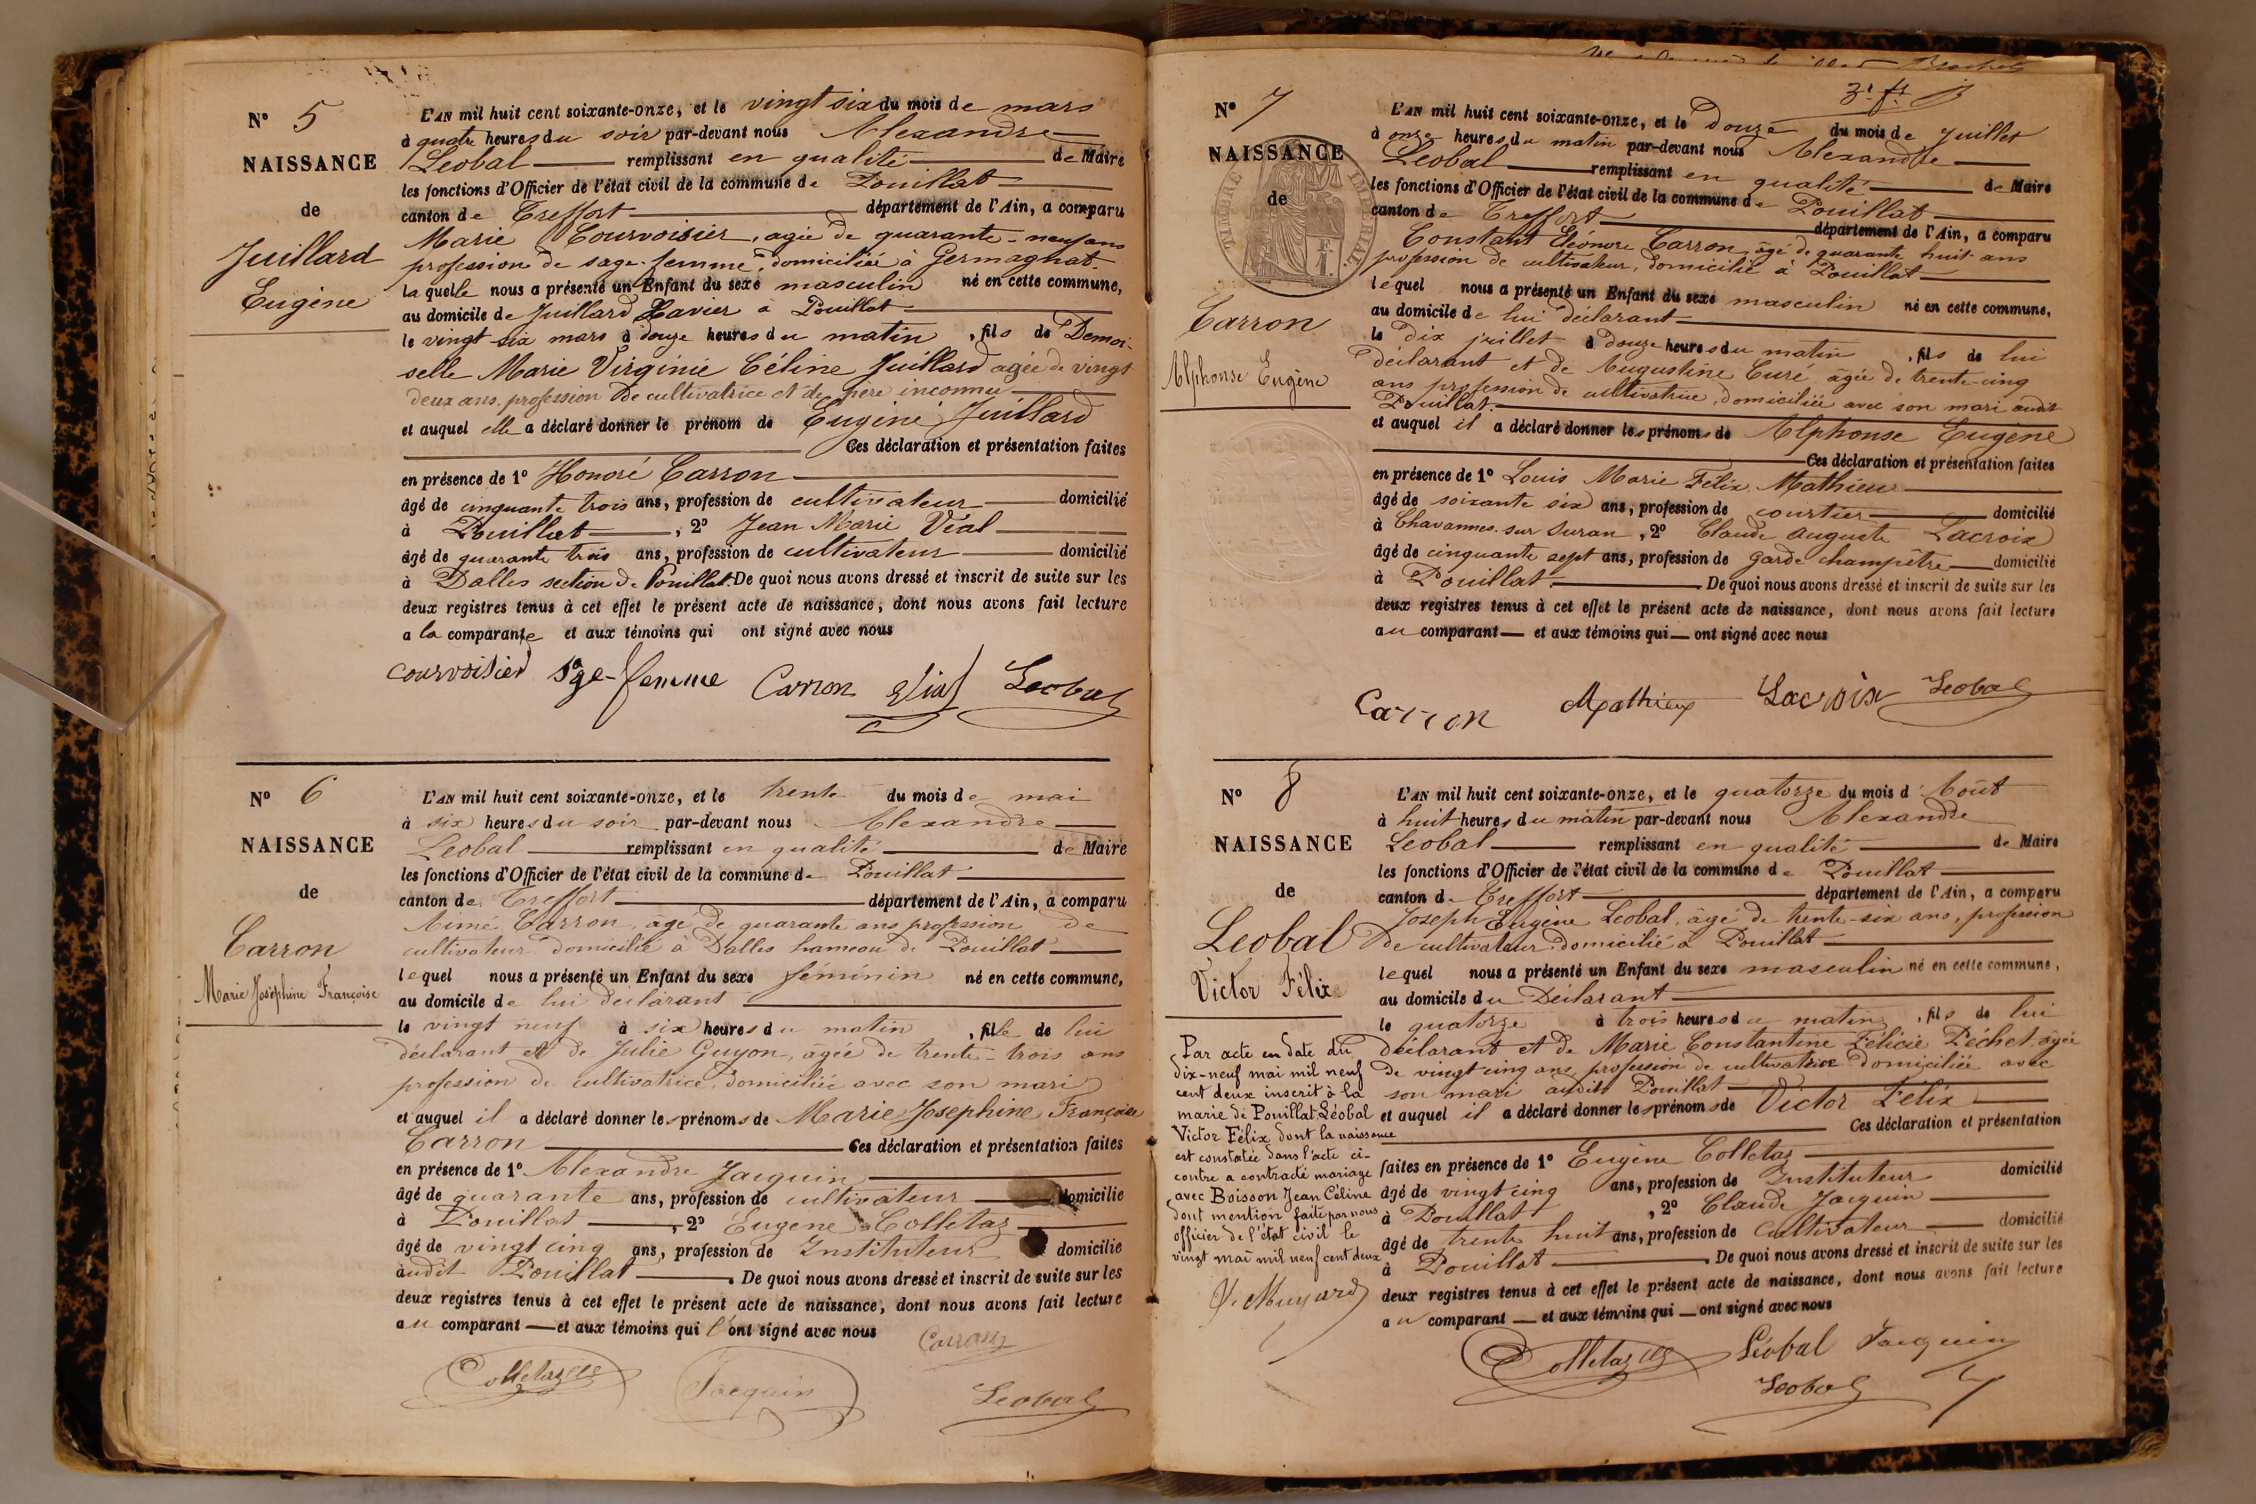 N° 5
NAISSANCE
de
Juillard
Eugène
L'AN mil huit cent soixante-onze, et le vingt six du mois de mars
à quatre heures du soir par-devant nous Alexandre
Leobal remplissant en qualité de Maire
les fonctions d'Officier de l'état civil de la commune de Pouillat
canton de Treffort département de l'Ain, a comparu
Marie Courvoisier, agée de quarante-neuf ans
profession de sage-femme, domiciliée à Germagnat
laquelle nous a présenté un Enfant du sexe masculin né en cette commune,
au domicile de Juillard Xavier à Pouillat
le vingt-six mars à douze heures du matin, fils de Demoi-
selle Marie Virginie Céline Juillard agée de vingt
deux ans profession de cultivatrice et de père inconnu
et auquel elle a déclaré donner le prénom de Eugène Juillard
Ces déclaration et présentation faites
en présence de 1° Honoré Carron
âgé de cinquante trois ans, profession de cultivateur domicilié
à Pouillat, 2° Jean Marie Vial
âgé de quarante trois ans, profession de cultivateur domicilié
à Dalles section de Pouillat De quoi nous avons dressé et inscrit de suite sur les
deux registres tenus à cet effet le présent acte de naissance, dont nous avons fait lecture
a la comparante et aux témoins qui ont signé avec nous
courvoisier sge-femme Carron Leobal
N° 6
NAISSANCE
de
Carron
Marie Joséphine Françoise
L'AN mil huit cent soixante-onze, et le trente du mois de mai
à six heures du soir par-devant nous Alexandre
Leobal remplissant en qualité de Maire
les fonctions d'Officier de l'état civil de la commune de Pouillat
canton de Treffort département de l'Ain, a comparu
Aimé Carron, âgé de quarante ans profession de
cultivateur domicilié à Dalles hameau de Pouillat
lequel nous a présenté un Enfant du sexe féminin né en cette commune,
au domicile de lui déclarant
le vingt neuf à six heures du matin, fille de lui
déclarant et de Julie Guyon, âgée de trente-trois ans
profession de cultivatrice, domiciliée avec son mari
et auquel il a déclaré donner les prénoms de Marie Joséphine Françoise
Carron Ces déclaration et présentation faites
en présence de 1° Alexandre Jacquin
âgé de quarante ans, profession de cultivateur domicilié
à Pouillat, 2° Eugène Colletaz
âgé de vingt cinq ans, profession de Instituteur domicilié
audit Pouillat. De quoi nous avons dressé et inscrit de suite sur les
deux registres tenus à cet effet le présent acte de naissance, dont nous avons fait lecture
au comparant et aux témoins qui l'ont signé avec nous
Carron
Colletaz Jacquin Leobal
N° 7
NAISSANCE
de
TIMBRE IMPÉRIAL
Carron
Alphonse Eugène
L'AN mil huit cent soixante-onze, et le Douze du mois de Juillet
à onze heures du matin par-devant nous Alexandre
Leobal remplissant en qualité de Maire
les fonctions d'Officier de l'état civil de la commune de Pouillat
canton de Treffort département de l'Ain, a comparu
Constant Eléonore Carron, âgé de quarante huit ans
profession de cultivateur, domicilié à Pouillat
lequel nous a présenté un Enfant du sexe masculin né en cette commune,
au domicile de lui déclarant
le dix juillet à douze heures du matin, fils de lui
déclarant et de Augustine Curé âgée de trente-cinq
ans profession de cultivatrice, domiciliée avec son mari audit
Pouillat.
et auquel il a déclaré donner les prénoms de Alphonse Eugène
Ces déclaration et présentation faites
en présence de 1° Louis Marie Félix Mathieu
âgé de soixante six ans, profession de courtier domicilié
à Chavannes-sur Suran, 2° Claude Auguste Lacroix
âgé de cinquante sept ans, profession de garde champêtre domicilié
à Pouillat. De quoi nous avons dressé et inscrit de suite sur les
deux registres tenus à cet effet le présent acte de naissance, dont nous avons fait lecture
au comparant et aux témoins qui ont signé avec nous
Carron Mathieu Lacroix Leobal
N° 8
NAISSANCE
de
Leobal
Victor Félix
Par acte en date du
dix-neuf mai mil neuf
cent deux inscrit à la
marie de Pouillat Léobal
Victor Félix dont la naissance
est constatée dans l'acte ci-
contre a contracté mariage
avec Boisson Jean Céline
dont mention faite par nous
officier de l'état civil le
vingt mai mil neuf cent deux
L'AN mil huit cent soixante-onze, et le quatorze du mois d'Août
à huit heures du matin par-devant nous Alexandre
Leobal remplissant en qualité de Maire
les fonctions d'Officier de l'état civil de la commune de Pouillat
canton de Treffort département de l'Ain, a comparu
Joseph Eugène Leobal, âgé de trente-six ans, profession
de cultivateur domicilié à Pouillat
lequel nous a présenté un Enfant du sexe masculin né en cette commune,
au domicile du Déclarant
le quatorze à trois heures du matin, fils de lui
déclarant et de Marie Constantine Félicie Péchet, âgée
de vingt cinq ans, profession de cultivatrice domiciliée avec
son mari audit Pouillat
et auquel il a déclaré donner les prénoms de Victor Félix
Ces déclaration et présentation
faites en présence de 1° Eugène Colletaz
âgé de vingt cinq ans, profession de Instituteur domicilié
à Pouillat, 2° Claude Jacquin
âgé de trente huit ans, profession de cultivateur domicilié
à Pouillat. De quoi nous avons dressé et inscrit de suite sur les
deux registres tenus à cet effet le présent acte de naissance, dont nous avons fait lecture
au comparant et aux témoins qui ont signé avec nous
Colletaz Léobal Jacquin
Leobal